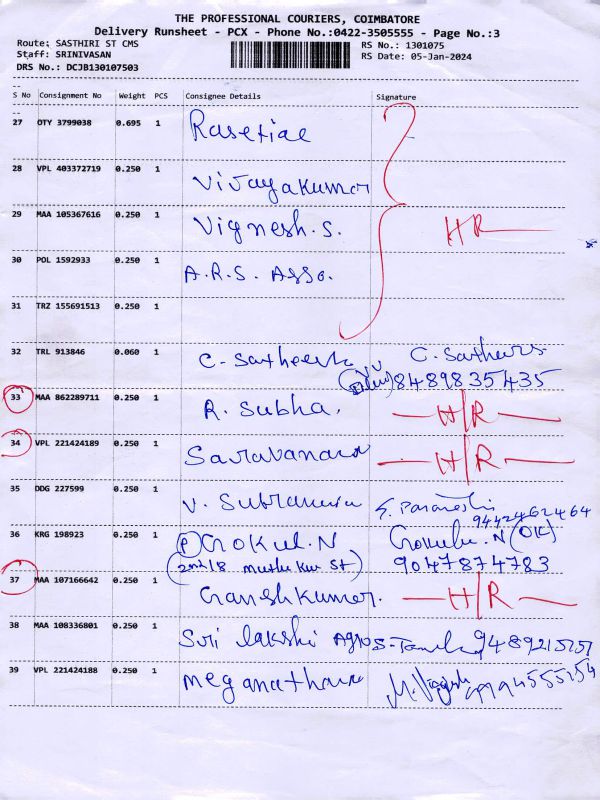 THE PROFESSIONAL COURIERS, COIMBATORE
Delivery Runsheet - PCX - Phone No.:0422-3505555 - Page No.:3
Route: SASTHIRI ST CMS RS No.: 1301075
Staff: SRINIVASAN RS Date: 05-Jan-2024
DRS No.: DCJB130107503
S No Consignment No Weight PCS Consignee Details Signature
27 OTY 3799038 0.695 1
28 VPL 403372719 0.250 1 Vijayakumar
29 MAA 105367616 0.250 1 Vignesh.S. HR
30 POL 1592933 0.250 1 A.R.S. Asso.
31 TRZ 155691513 0.250 1
32 TRL 913846 0.060 1 C. Satheesh C.
8489835435
33 MAA 862289711 0.250 1 R. Subha. H/R
34 VPL 221424189 0.250 1 Saravanan H/R
35 DDG 227599 0.250 1 V.
9442462464
36 KRG 198923 0.250 1 P Gokul.N Gokul.N (OK)
(2nd 18 Muthu Kur St) 9047874783
37 MAA 107166642 0.250 1 Ganeshkumar. H/R
38 MAA 108336801 0.250 1 Sri lakshi Agros
39 VPL 221424188 0.250 1 Meganathan M.